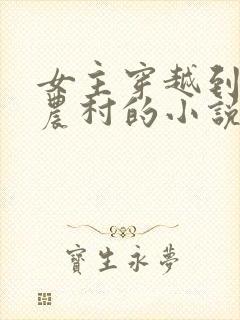 女主穿越到
農村的小說
寶生永夢